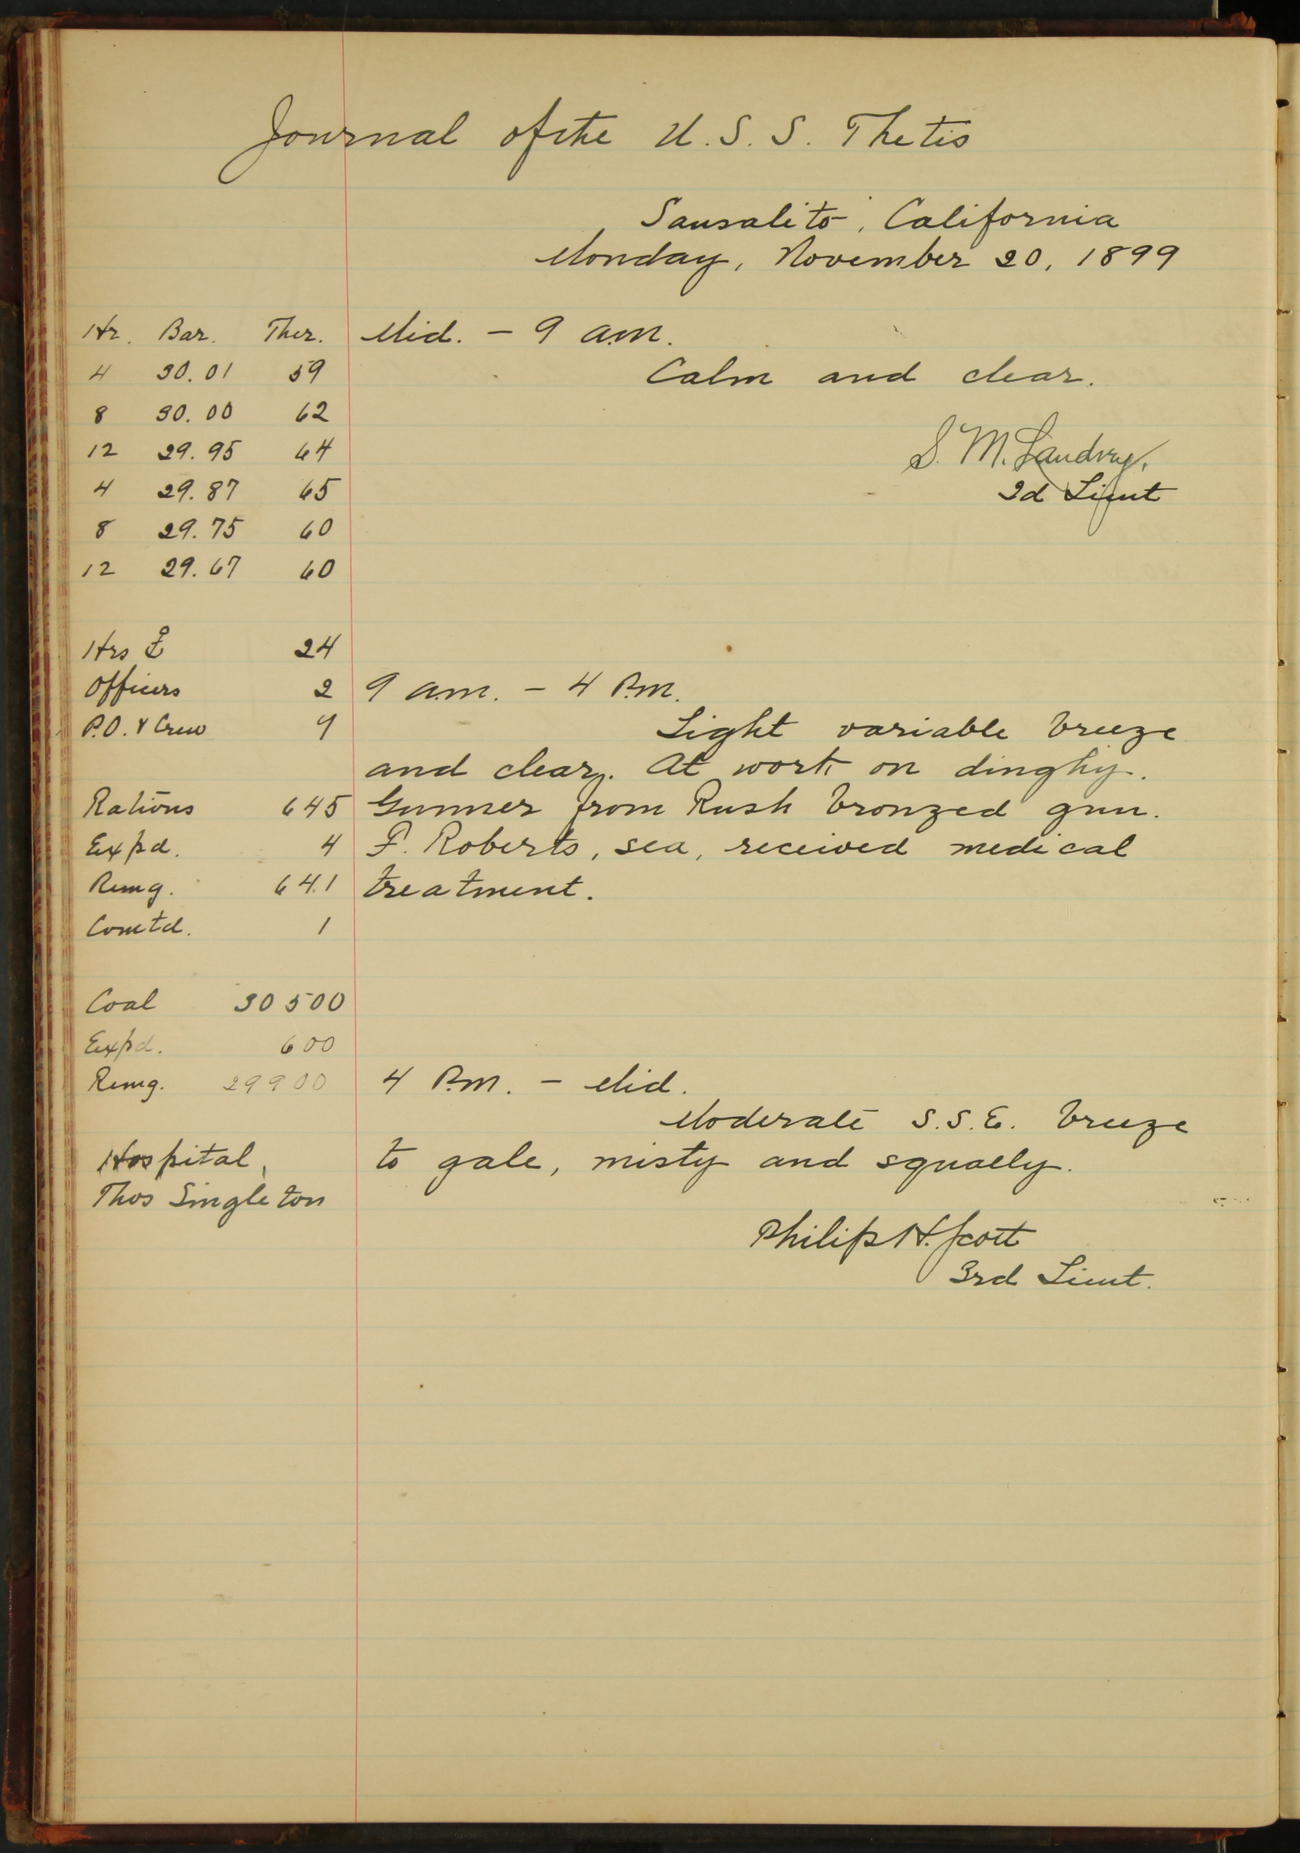 Journal of the U.S.S. Thetis
Sausalito, California
Monday, November 20, 1899
Hr. Bar. Ther. Mid. - 9 a.m.
4 30.01 59 Calm and clear.
8 30.00 62
12 29.95 64 S. M. Landrey,
4 29.87 65 2d Lieut
8 29.75 60
12 29.67 60
Hrs 24
Officers 2 9 a.m. - 4 P.m.
P.O. & Crew 9 Light variable breeze
and clear. At work on dinghy.
Rations 645 Gunner from Rush bronzed gun.
Expd. 4 F. Roberts, sea, received medical
Remg. 641 treatment.
Comtd. 1
Coal 30500
Expd. 600
Remg. 29900 4 P.m. - Mid.
Moderate S.S.E. breeze
Hospital, to gale, misty and squally.
Thos Singleton
Philip H. Scott
3rd Lieut.